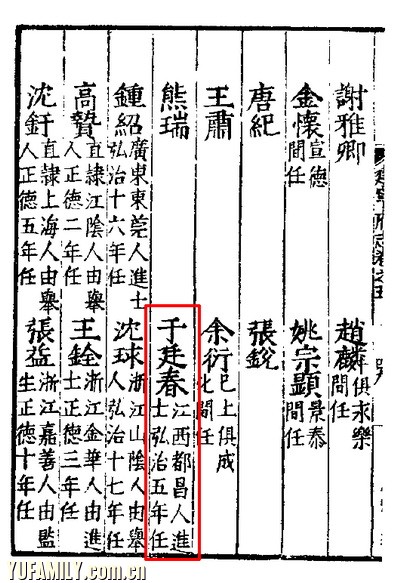 建寧府志卷之五
謝雅卿　趙麟俱永樂間任
金懷宣德間任　姚宗顯景泰間任
唐紀　張銳
王肅　余衍已上俱成化間任
熊瑞　于廷春江西都昌人進士弘治五年任
鍾紹廣東東莞人進士弘治十六年任　沈球浙江山陰人由舉人弘治十七年任
高贊直隸江陰人由舉人正德二年任　王銓浙江金華人由進士正德三年任
沈釪直隸上海人由舉人正德五年任　張益浙江嘉善人由監生正德十年任
YUFAMILY.com.cn